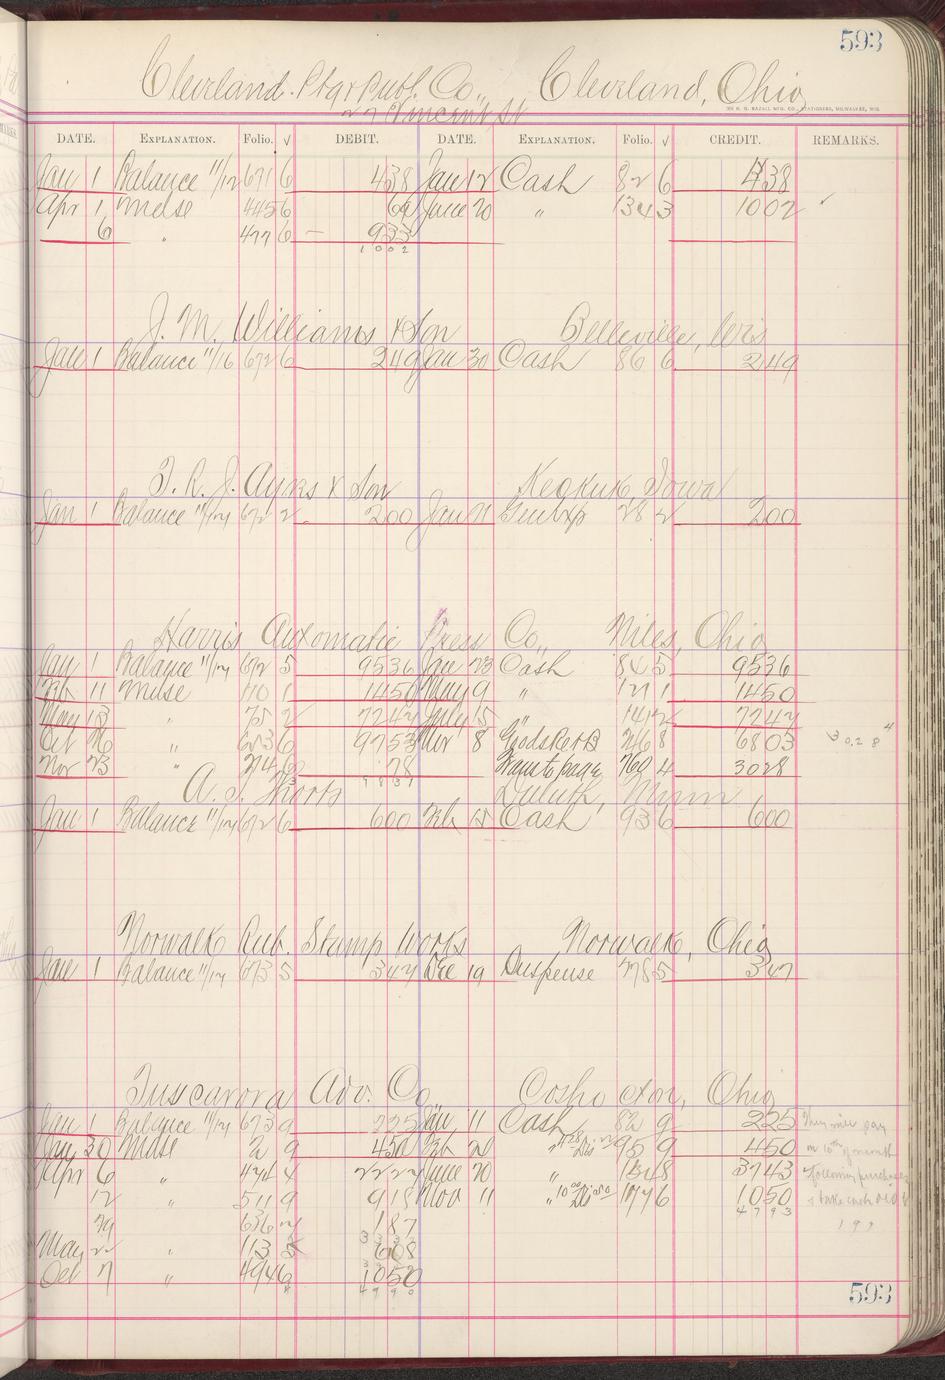 593
Cleveland Ptg & Publ. Co., Cleveland, Ohio
27 Vincent St
DATE. EXPLANATION. Folio. √ DEBIT. DATE. EXPLANATION. Folio. √ CREDIT. REMARKS.
Jan 1 Balance 11/12 671 6 438 Jan 12 Cash 82 6 438
Apr 1 Mdse 445 6 69 June 20 " 134 3 1002 ✓
6 " 477 6 933
1002
J. M. Williams & Son Belleville, Wis
Jan 1 Balance 11/16 672 6 249 Jan 30 Cash 86 6 249
T. R. J. Ayres & Son Keokuk, Iowa
Jan 1 Balance 11/14 672 2 200 Jan 11 28 2 200
Harris Automatic Press Co., Niles, Ohio
Jan 1 Balance 11/14 672 5 9536 Jan 23 Cash 84 5 9536
Feb 11 Mdse 110 1 1450 May 9 " 121 1 1450
May 13 " 75 2 7247 July 5 " 141 2 7247
Oct 26 " 683 6 9753 Nov 8 Gds Ret'd 246 8 6803
Nov 23 " 274 6 78 Trans to page 760 4 3028
9831
3028
A. J. Duluth, Minn
Jan 1 Balance 11/14 672 6 600 Feb 15 Cash 93 6 600
Norwalk Rub. Stamp Works Norwalk, Ohio
Jan 1 Balance 11/14 673 5 347 Dec 19 Suspense 778 5 347
Tuscarora Adv. Co., Coshocton, Ohio
Jan 1 Balance 11/14 673 9 225 Jan 11 Cash 82 9 225 They will pay
Jan 30 Mdse 2 9 450 Feb 21 " 95 9 450 on 10th of month
Apr 6 " 424 4 2222 June 20 " 134 8 3743 following purchase
12 " 511 9 918 Nov 11 " 177 6 1050 & take cash
4793
29 636 187 197
May 22 " 113 5 608
Oct 7 " 494 6 1050
4990
593